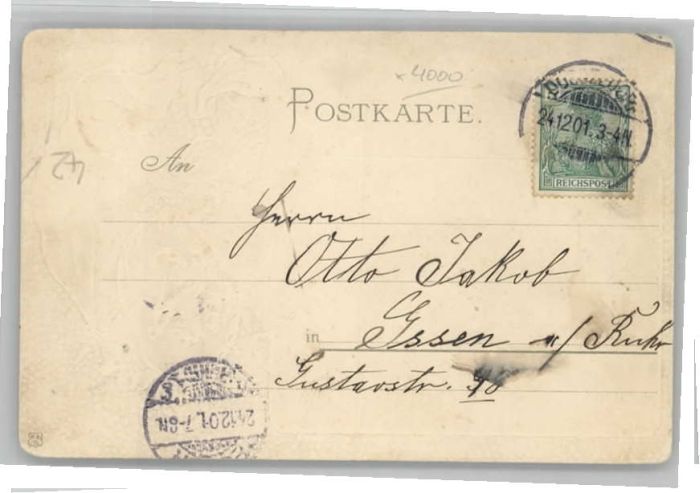 × 4000
POSTKARTE.
24.12.01. 3-4N.
REICHSPOST
An
Herrn
Otto Jakob
in Essen a/ Ruhr
Gustavstr.
24.12.01. 7-8N.